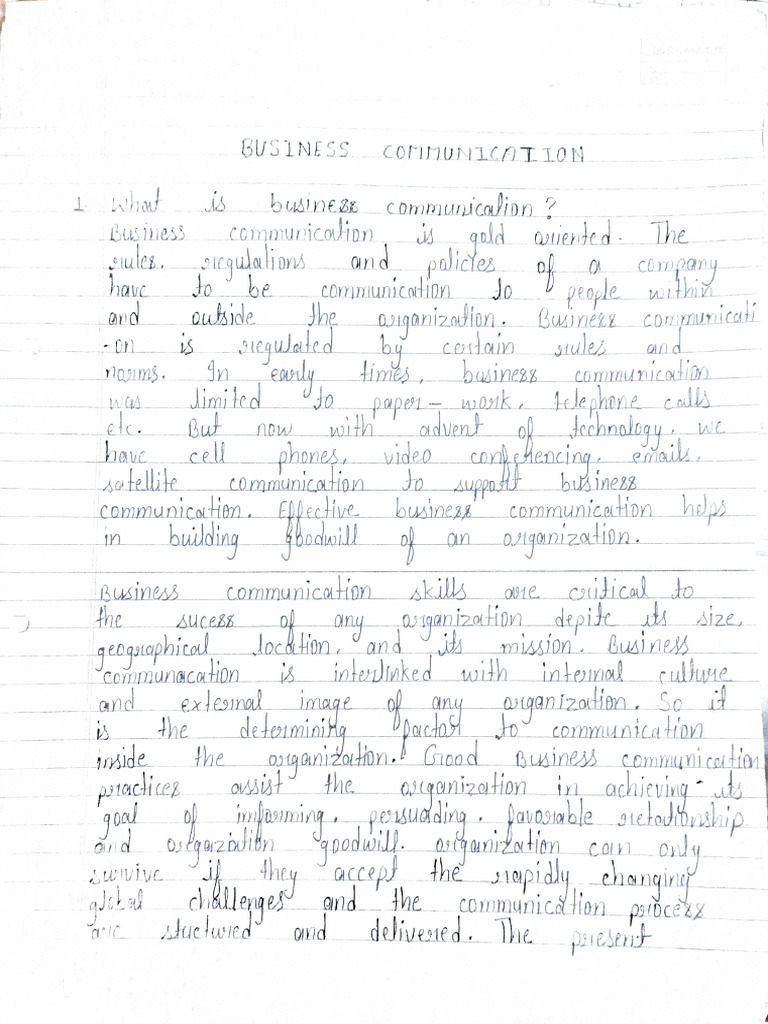 BUSINESS COMMUNICATION
1 What is business communication?
Business communication is gold oriented. The
rules, regulations and policies of a company
have to be communication to people within
and outside the organization. Business communicati
-on is regulated by certain rules and
norms. In early times, business communication
was limited to paper-work, telephone calls
etc. But now with advent of technology, we
have cell phones, video conferencing, emails,
satellite communication to support business
communication. Effective business communication helps
in building goodwill of an organization.
Business communication skills are critical to
the sucess of any organization depite its size,
geographical location, and its mission. Business
communacation is interlinked with internal culture
and external image of any organization. So it
is the determining factor to communication
inside the organization. Good Business communication
practices assist the organization in achieving its
goal of informing, persuading, favorable relationship
and orgazation goodwill. organization can only
survive if they accept the rapidly changing
global challenges and the communication process
are stuctured and delivered. The present